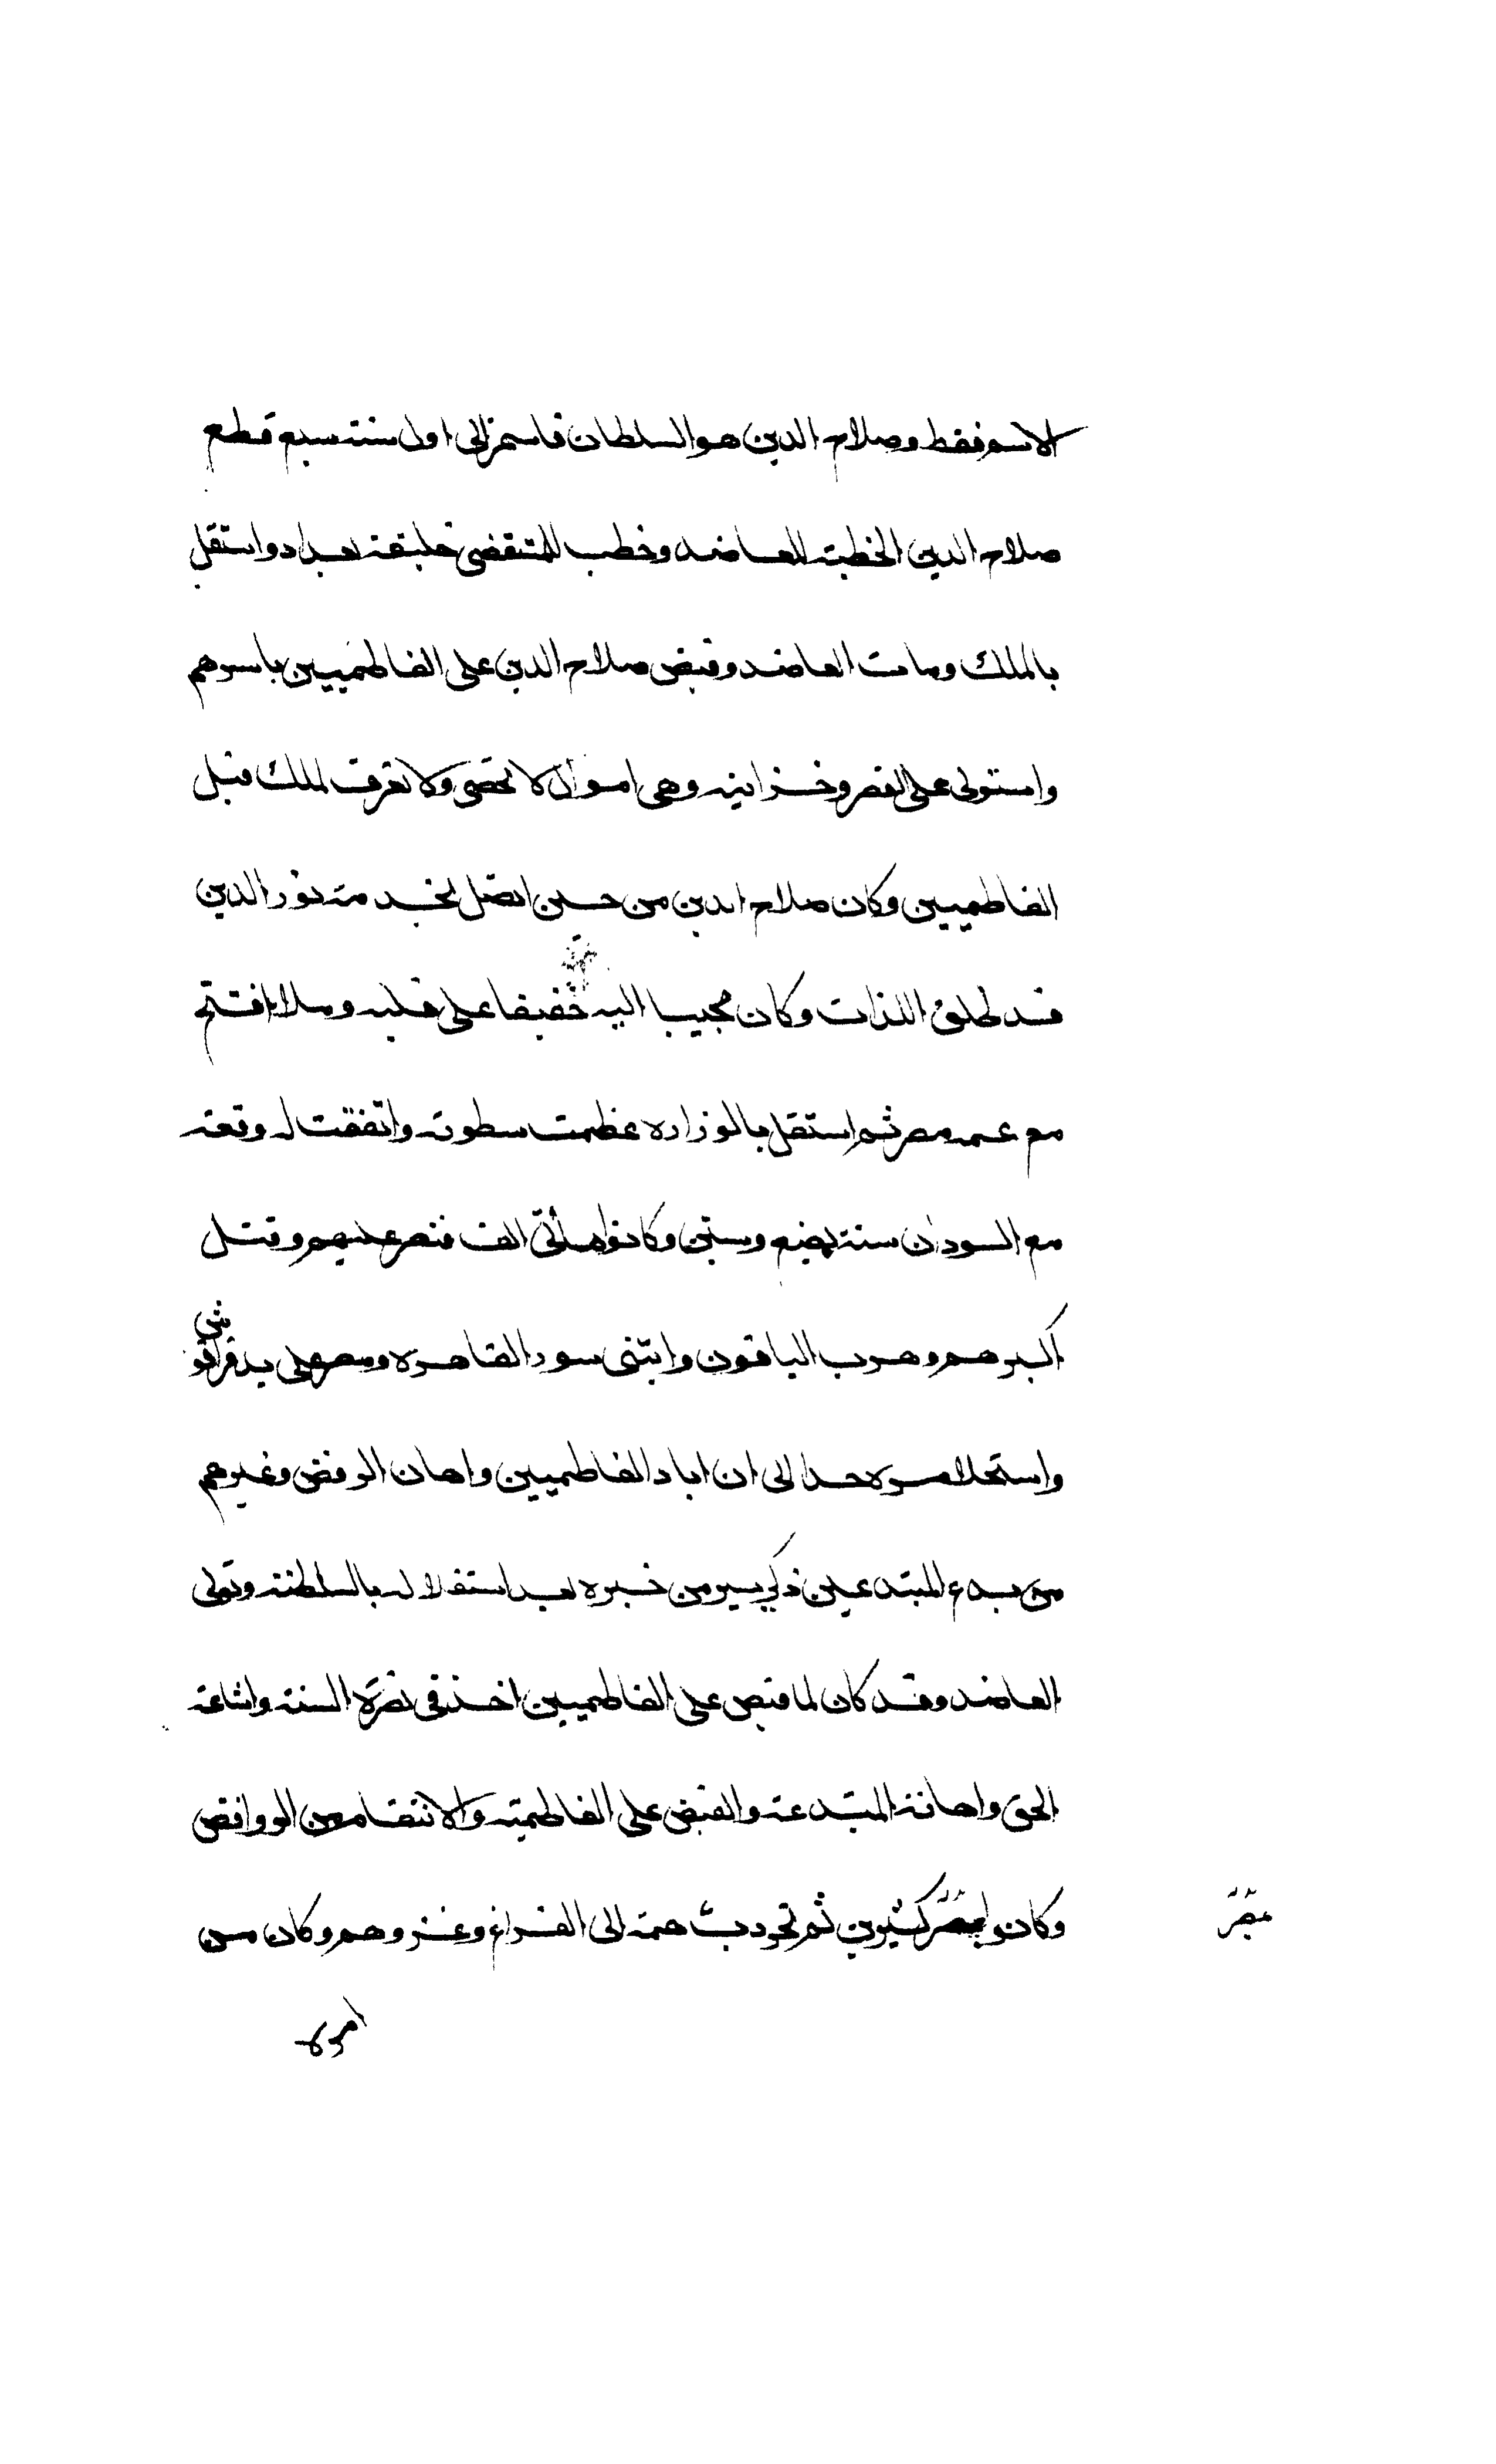 الاسم فقط وصلاح الدين هو السلطان فاستمر الى اول سنة سبع قطع
صلاح الدين الخطبة للعاضد وخطب للمتقضى خليفة بغداد واستقل
بالملك ومات العاضد وقبض صلاح الدين على الفاطميين باسرهم
واستولى على القصر وخزاينه وهى اموال لا تحصى ولا تعرف لملك قبل
الفاطميين وكان صلاح الدين من حين اتصل بخدمة نور الدين
قد طلق اللذات وكان محببا اليه خفيفا على قلبه وملا افتتح
مع عمه مصر ثم استقل بالوزاره عظمت سطوته واتفقت له وقعة
مع السودان سنة بضع وستين وكانوا مأتى الف فنصر عليهم وقتل
اكبرهم وهرب الباقون وابتنى سور القاهرة ومصر على يد قراقوش
واستحلا امره جدا الى ان اباد الفاطميين واهان الروفض وغيرهم
من بدع المبتدعين ذكر يسير من خبره بعد استقلاله بالسلطنة وتولى
العاضد وقد كان لما قبض على الفاطميين اخذ فى نصرة السنة واشاعة
الحق واهانة المبتدعة والقبض على الفاطمية والانتقام من الروافض
وكانوا بمصر كثيرين ثم تجردت همة الى الفراغ وغزوهم وكان من
مصر
امره لا